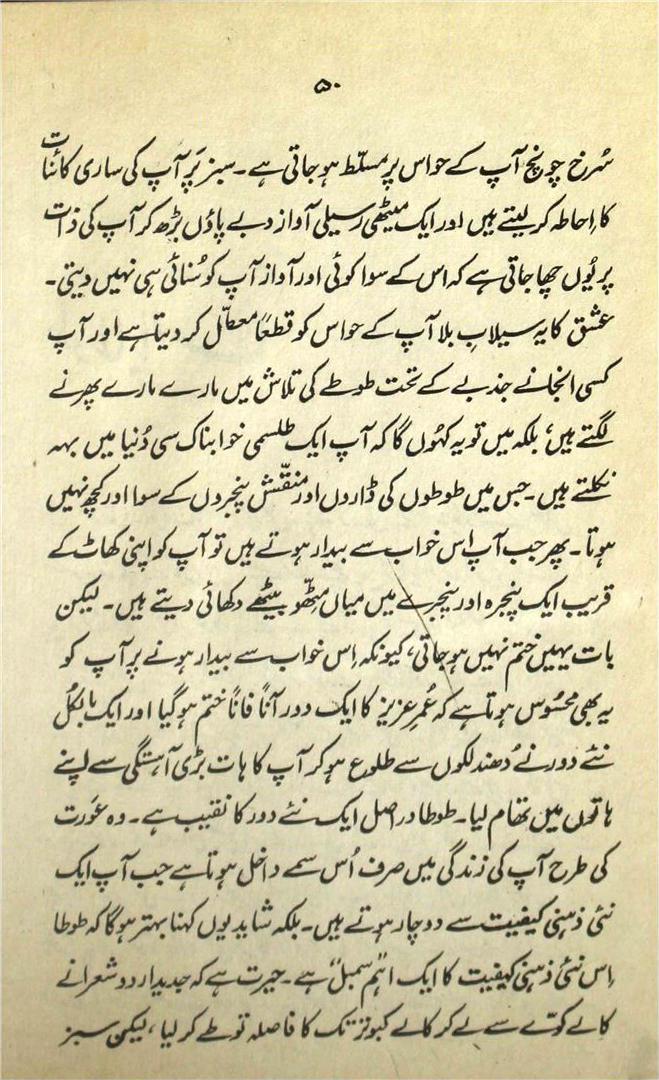 ۵۰
سُرخ چونچ آپ کے حواس پر مسلّط ہو جاتی ہے۔ سبز پَر آپ کی ساری کائنات
کا احاطہ کر لیتے ہیں اور ایک میٹھی رسیلی آواز دبے پاؤں بڑھ کر آپ کی ذات
پر یُوں چھا جاتی ہے کہ اس کے سوا کوئی اور آواز آپ کو سُنائی ہی نہیں دیتی۔
عشق کا یہ سیلابِ بلا آپ کے حواس کو قطعاً معطّل کر دیتا ہے اور آپ
کسی انجانے جذبے کے تحت طوطے کی تلاش میں مارے مارے پھرنے
لگتے ہیں، بلکہ میں تو یہ کہُوں گا کہ آپ ایک طلسمی خوابناک سی دُنیا میں بہہ
نکلتے ہیں۔ جس میں طوطوں کی ڈاروں اور منقّش پنجروں کے سوا اور کچھ نہیں
ہوتا۔ پھر جب آپ اس خواب سے بیدار ہوتے ہیں تو آپ کو اپنی کھاٹ کے
قریب ایک پنجرہ اور پنجرے میں میاں مِٹھّو بیٹھے دکھائی دیتے ہیں۔ لیکن
بات یہیں ختم نہیں ہو جاتی، کیونکہ اِس خواب سے بیدار ہونے پر آپ کو
یہ بھی محسُوس ہوتا ہے کہ عُمرِ عزیز کا ایک دور آناً فاناً ختم ہو گیا اور ایک بالکُل
نئے دور نے دُھندلکوں سے طلوع ہو کر آپ کا ہات بڑی آہستگی سے اپنے
ہاتوں میں تھام لیا۔ طوطا دراصل ایک نئے دور کا نقیب ہے۔ وہ عورت
کی طرح آپ کی زندگی میں صرف اُس سمے داخل ہوتا ہے جب آپ ایک
نئی ذہنی کیفیت سے دوچار ہوتے ہیں۔ بلکہ شاید یوں کہنا بہتر ہوگا کہ طوطا
اِس نئی ذہنی کیفیت کا ایک اہم "سمبل" ہے۔ حیرت ہے کہ جدید اردو شعرا نے
کالے کوّے سے لے کر کالے کبوتر تک کا فاصلہ تو طے کر لیا، لیکن سبز